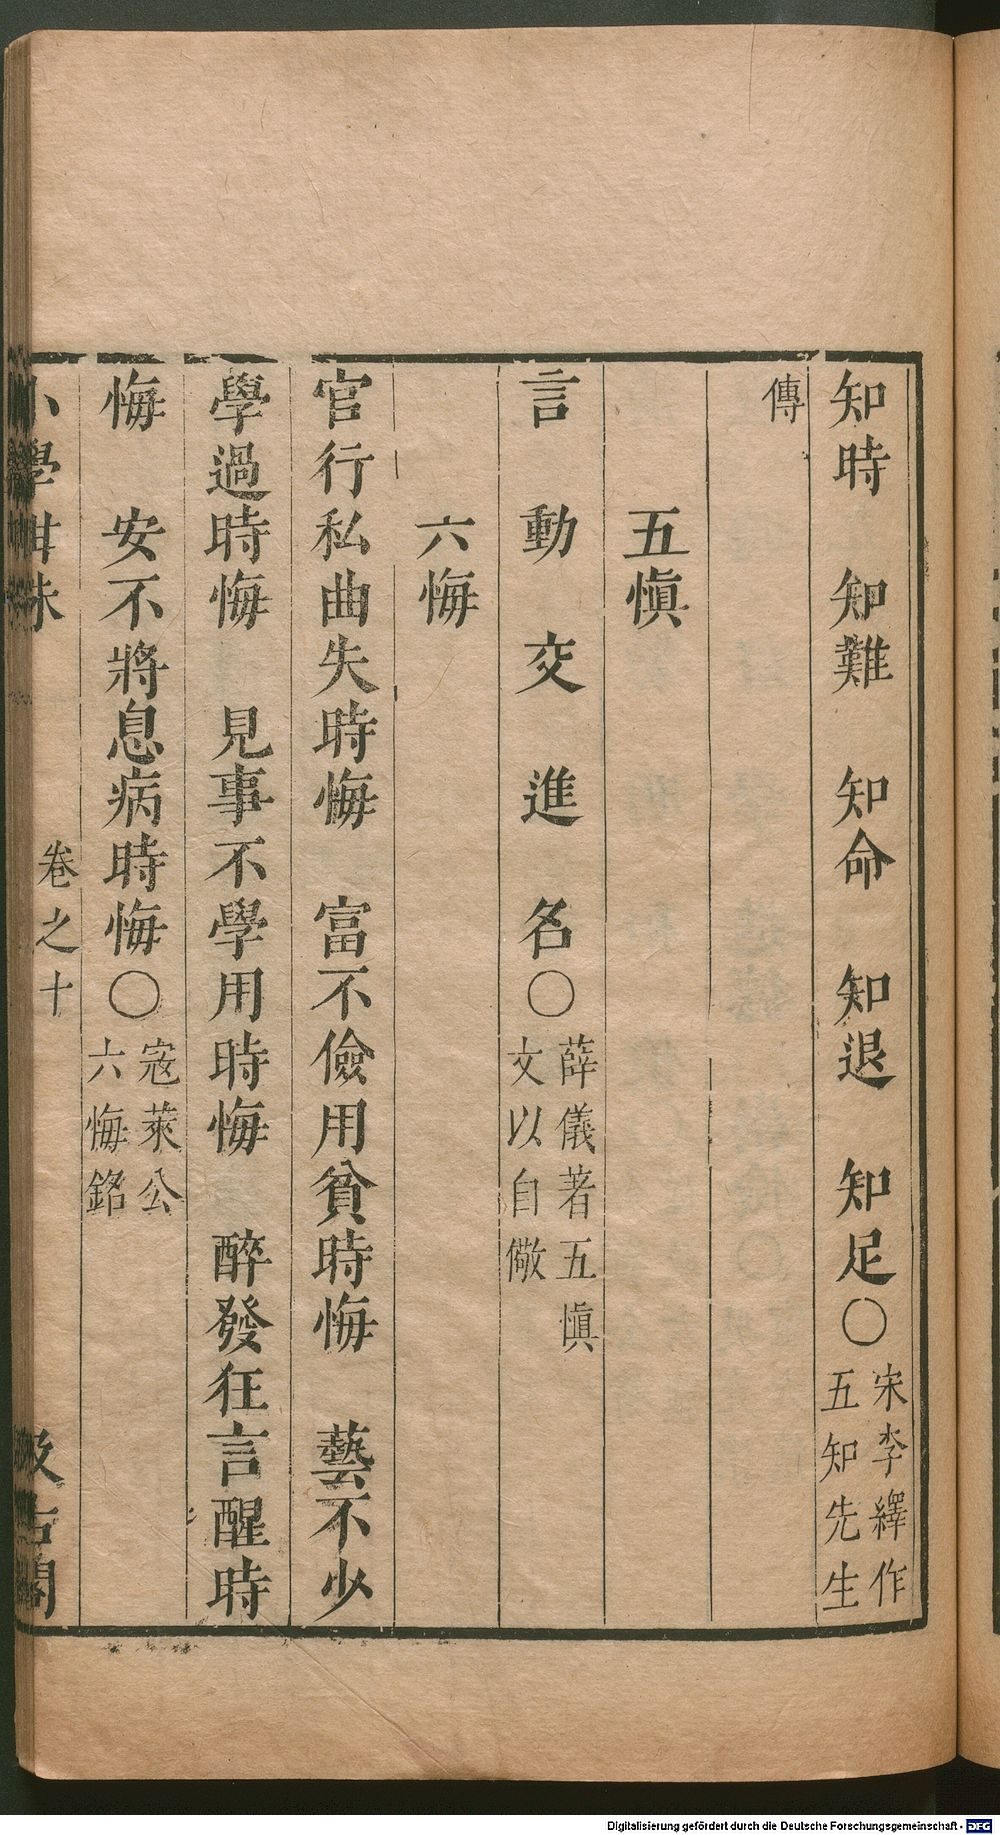 知時 知難 知命 知退 知足○宋李繹作五知先生
傳
五慎
言 動 交 進 名○薛儀著五慎文以自儆
六悔
官行私曲失時悔 富不儉用貧時悔 藝不少
學過時悔 見事不學用時悔 醉發狂言醒時
悔 安不將息病時悔○寇萊公六悔銘
小學紺珠 卷之十 汲古閣
Digitalisierung gefördert durch die Deutsche Forschungsgemeinschaft - DFG